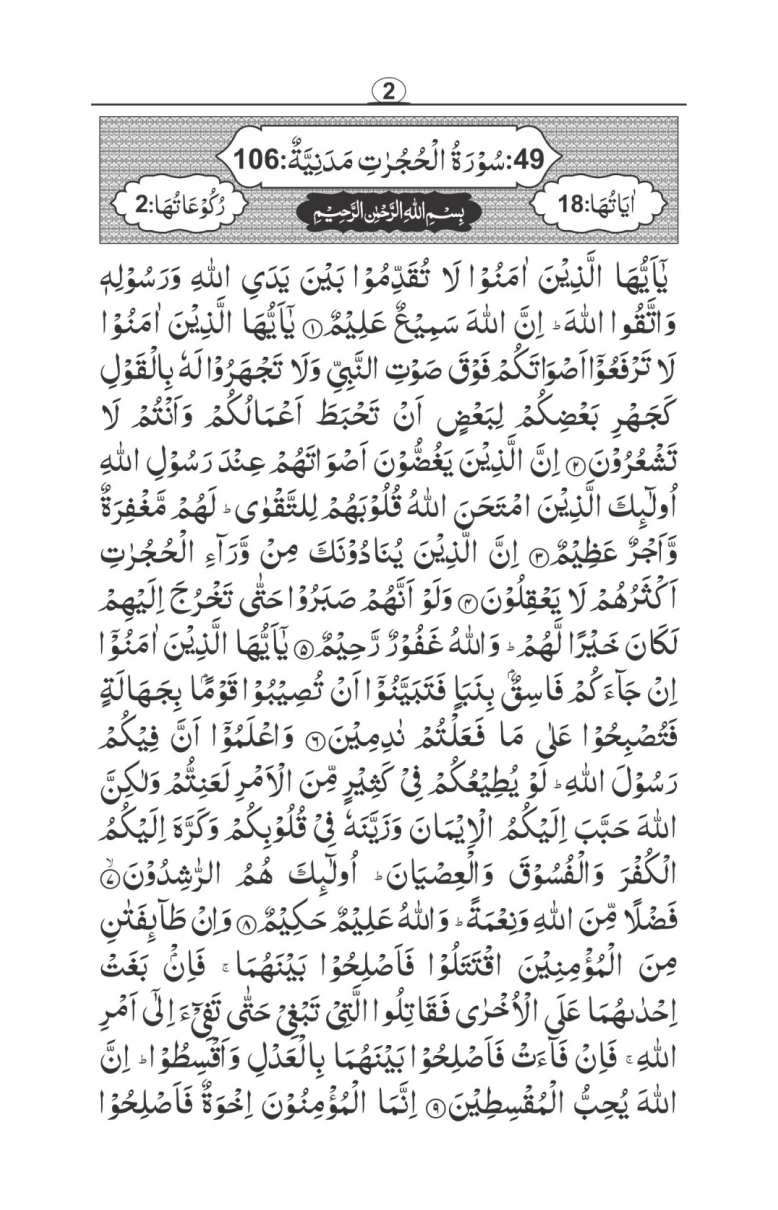 2
49:سُوْرَةُ الْحُجُرٰتِ مَدَنِيَّةٌ:106
اٰيَاتُهَا:18
بِسْمِ اللهِ الرَّحْمٰنِ الرَّحِيْمِ
رُكُوْعَاتُهَا:2
يٰۤاَيُّهَا الَّذِيْنَ اٰمَنُوْا لَا تُقَدِّمُوْا بَيْنَ يَدَيِ اللهِ وَرَسُوْلِهٖ
وَاتَّقُوا اللهَ ؕ اِنَّ اللهَ سَمِيْعٌ عَلِيْمٌ ۝۱ يٰۤاَيُّهَا الَّذِيْنَ اٰمَنُوْا
لَا تَرْفَعُوْۤا اَصْوَاتَكُمْ فَوْقَ صَوْتِ النَّبِيِّ وَلَا تَجْهَرُوْا لَهٗ بِالْقَوْلِ
كَجَهْرِ بَعْضِكُمْ لِبَعْضٍ اَنْ تَحْبَطَ اَعْمَالُكُمْ وَاَنْتُمْ لَا
تَشْعُرُوْنَ ۝۲ اِنَّ الَّذِيْنَ يَغُضُّوْنَ اَصْوَاتَهُمْ عِنْدَ رَسُوْلِ اللهِ
اُولٰٓئِكَ الَّذِيْنَ امْتَحَنَ اللهُ قُلُوْبَهُمْ لِلتَّقْوٰى ؕ لَهُمْ مَّغْفِرَةٌ
وَّاَجْرٌ عَظِيْمٌ ۝۳ اِنَّ الَّذِيْنَ يُنَادُوْنَكَ مِنْ وَّرَآءِ الْحُجُرٰتِ
اَكْثَرُهُمْ لَا يَعْقِلُوْنَ ۝۴ وَلَوْ اَنَّهُمْ صَبَرُوْا حَتّٰى تَخْرُجَ اِلَيْهِمْ
لَكَانَ خَيْرًا لَّهُمْ ؕ وَاللهُ غَفُوْرٌ رَّحِيْمٌ ۝۵ يٰۤاَيُّهَا الَّذِيْنَ اٰمَنُوْۤا
اِنْ جَآءَكُمْ فَاسِقٌۢ بِنَبَاٍ فَتَبَيَّنُوْۤا اَنْ تُصِيْبُوْا قَوْمًۢا بِجَهَالَةٍ
فَتُصْبِحُوْا عَلٰى مَا فَعَلْتُمْ نٰدِمِيْنَ ۝۶ وَاعْلَمُوْۤا اَنَّ فِيْكُمْ
رَسُوْلَ اللهِ ؕ لَوْ يُطِيْعُكُمْ فِيْ كَثِيْرٍ مِّنَ الْاَمْرِ لَعَنِتُّمْ وَلٰكِنَّ
اللهَ حَبَّبَ اِلَيْكُمُ الْاِيْمَانَ وَزَيَّنَهٗ فِيْ قُلُوْبِكُمْ وَكَرَّهَ اِلَيْكُمُ
الْكُفْرَ وَالْفُسُوْقَ وَالْعِصْيَانَ ؕ اُولٰٓئِكَ هُمُ الرّٰشِدُوْنَ ۝۷ۙ
فَضْلًا مِّنَ اللهِ وَنِعْمَةً ؕ وَاللهُ عَلِيْمٌ حَكِيْمٌ ۝۸ وَاِنْ طَآئِفَتٰنِ
مِنَ الْمُؤْمِنِيْنَ اقْتَتَلُوْا فَاَصْلِحُوْا بَيْنَهُمَا ۚ فَاِنْۢ بَغَتْ
اِحْدٰىهُمَا عَلَى الْاُخْرٰى فَقَاتِلُوا الَّتِيْ تَبْغِيْ حَتّٰى تَفِيْٓءَ اِلٰۤى اَمْرِ
اللهِ ۚ فَاِنْ فَآءَتْ فَاَصْلِحُوْا بَيْنَهُمَا بِالْعَدْلِ وَاَقْسِطُوْا ؕ اِنَّ
اللهَ يُحِبُّ الْمُقْسِطِيْنَ ۝۹ اِنَّمَا الْمُؤْمِنُوْنَ اِخْوَةٌ فَاَصْلِحُوْا